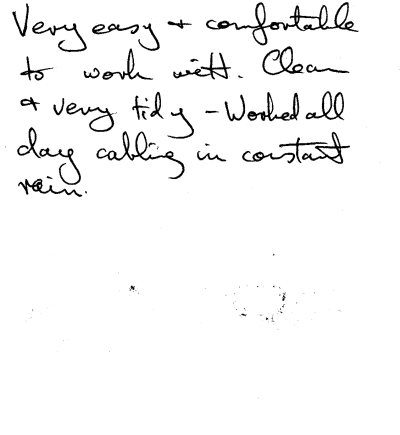 Very easy + comfortable
to work with. Clean
+ very tidy - Worked all
day cabling in constant
rain.